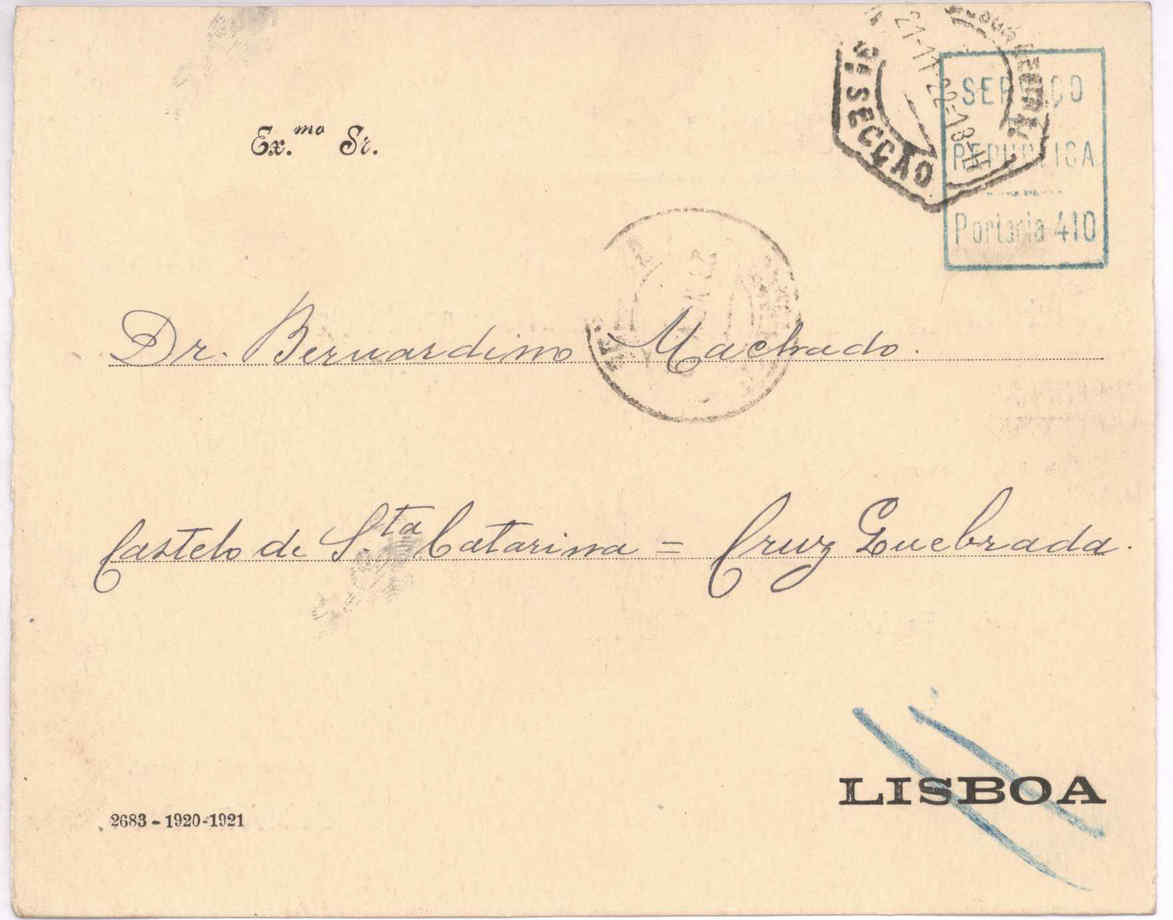 Ex.mo Sr.
21-11-22-18
3ª SECÇÃO
SERVIÇO
REPUBLICA
Portaria 410
Dr. Bernardino Machado.
Castelo de Sta Catarina = Cruz Quebrada.
LISBOA
2683 - 1920-1921